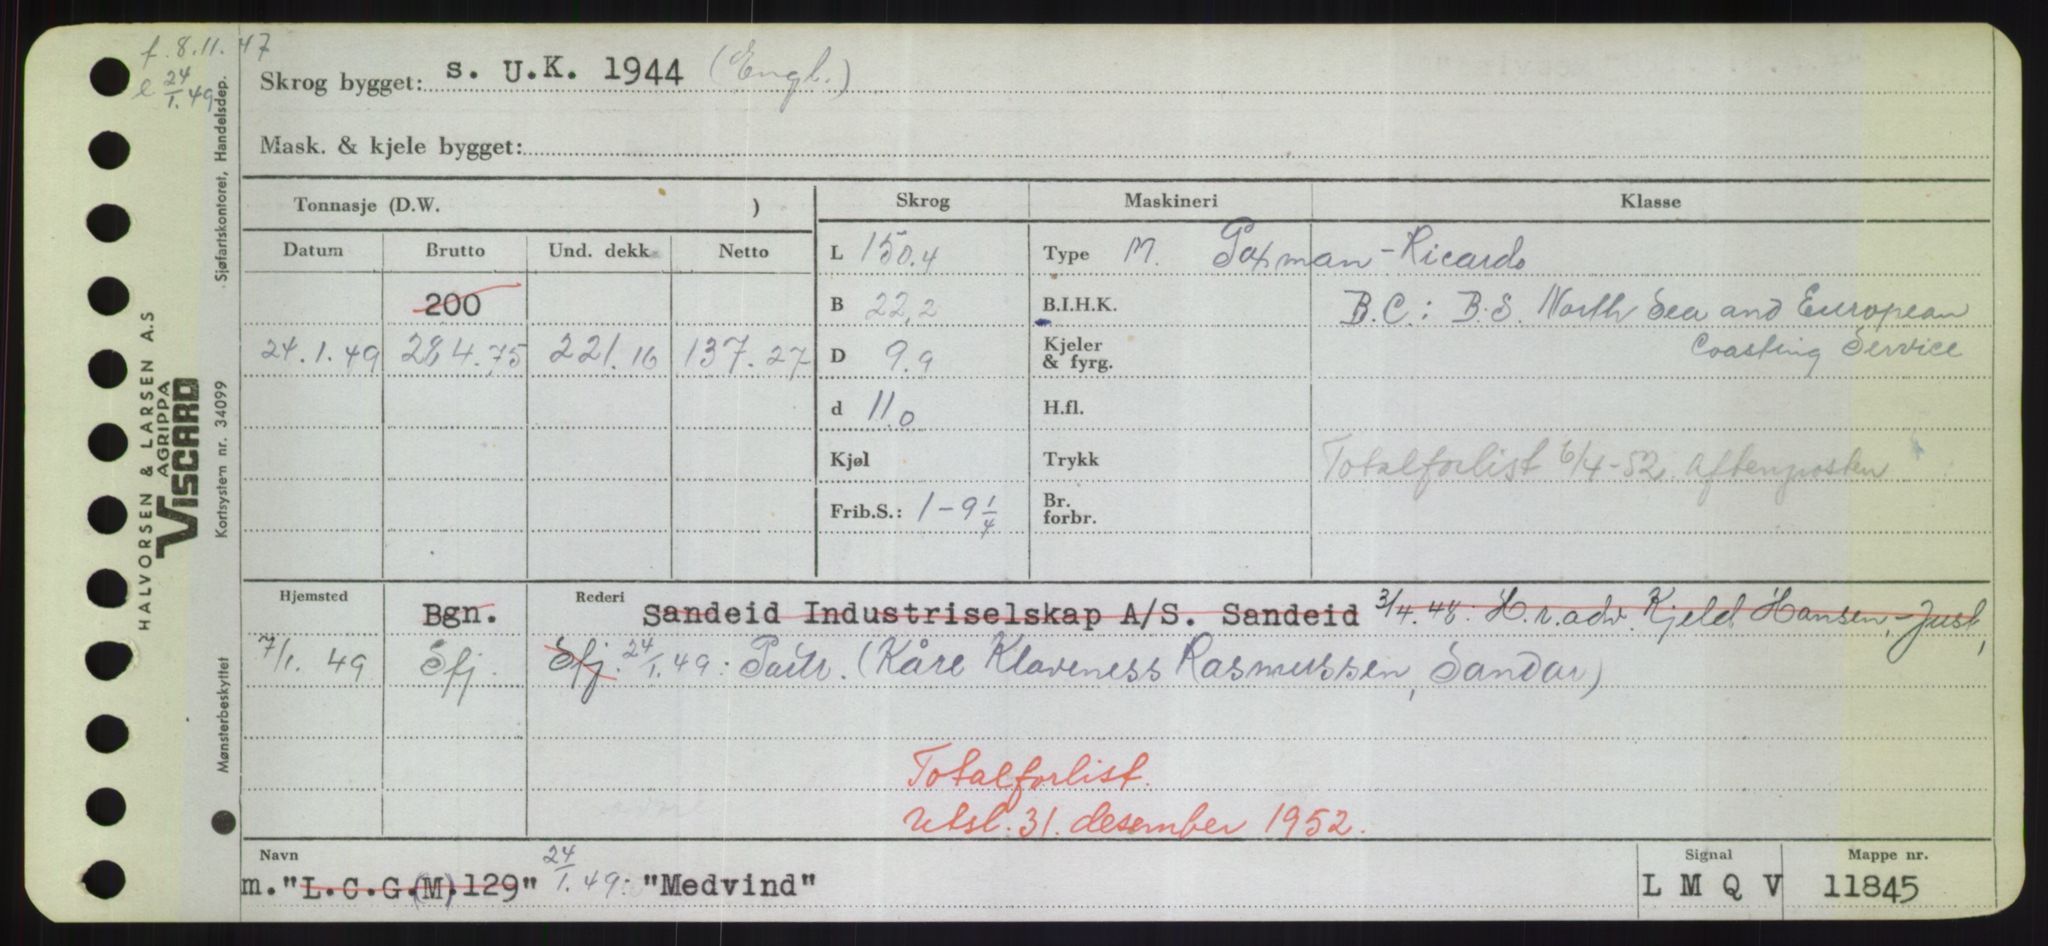 f. 8.11.47
e 24/1.49
Skrog bygget: s. U.K. 1944 (Engl.)
Mask. & kjele bygget:
Tonnasje (D.W. )
Skrog Maskineri Klasse
Datum Brutto Und. dekk Netto
L 150.4 Type M. Paxman-Ricardo
200
B 22,2 B.I.H.K. B.C.: B.S. North Sea and European
24.1.49 284.75 221.16 137.27
D 9.9 Kjeler & fyrg. Coasting Service
d 11.0 H.fl.
Kjøl Trykk Totalforlist 6/4-52. Aftenposten
Frib.S.: 1-9 1/4 Br. forbr.
Hjemsted Bgn. Rederi Sandeid Industriselskap A/S. Sandeid 3/4.48. H.r.adv. Kjeld Hansen, Just,
7/1.49 Sfj. Sfj. 24/1.49: Partr. (Kåre Klaveness Rasmussen, Sandar)
Totalforlist.
Utsl. 31. desember 1952.
Navn Signal Mappe nr.
m. "L.C.G.(M).129" 24/1.49: "Medvind" L M Q V 11845
HALVORSEN & LARSEN A.S
AGRIPPA
VISCARD
Sjøfartskontoret, Handelsdep.
Kortsystem nr. 34099
Mønsterbeskyttet